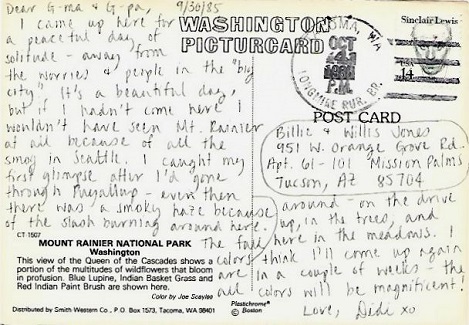 Dear G-ma & G-pa, 9/30/85
I came up here for
a peaceful day of
solitude - away from
the worries & people in the "big
city". It's a beautiful day,
but if I hadn't come here I
wouldn't have seen Mt. Rainier
at all because of all the
smog in Seattle. I caught my
first glimpse after I'd gone
through Puyallup - even then
there was a smoky haze because
of the slash burning around here.
CT 1507
MOUNT RAINIER NATIONAL PARK
Washington
This view of the Queen of the Cascades shows a
portion of the multitudes of wildflowers that bloom
in profusion. Blue Lupine, Indian Basket Grass and
Red Indian Paint Brush are shown here.
Color by Joe Scaylea
Distributed by Smith Western Co. P.O. Box 1573, Tacoma, WA 98401
WASHINGTON
PICTURCARD
TACOMA, WA
OCT
P.M.
LONGMIRE RUR. BR.
Sinclair Lewis
POST CARD
Billie & Willis Jones
951 W. Orange Grove Rd.
Apt. 61-101 Mission Palms
Tucson, AZ 85704
around - on the drive
up, in the trees, and
here in the meadows. I
think I'll come up again
in a couple of weeks - the
colors will be magnificent!
Love, Didi xo
The fall
colors
are
all
Plastichrome®
© Boston